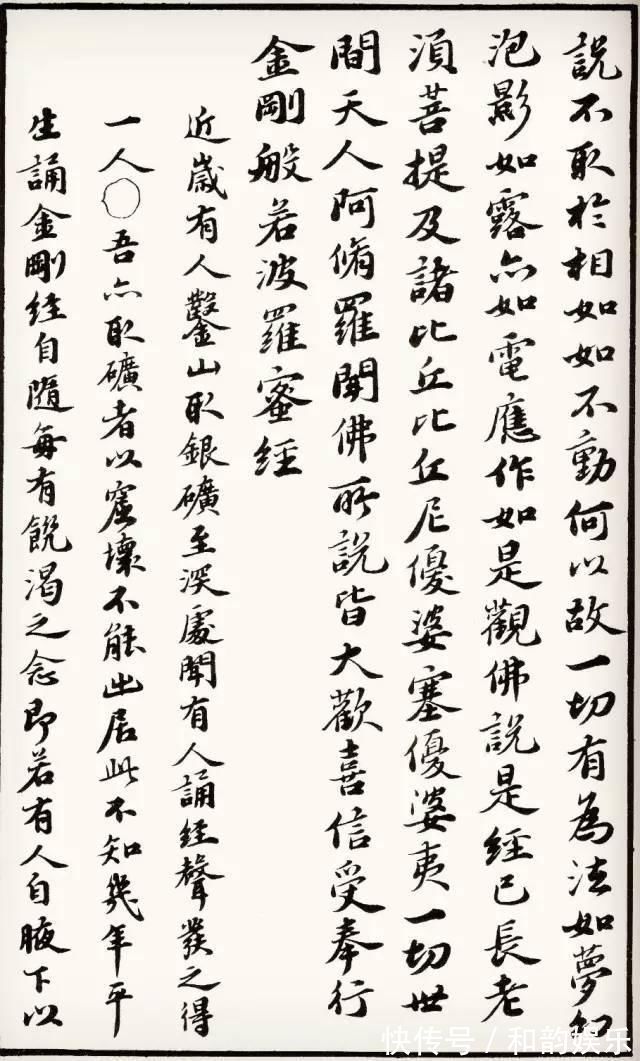 說不取於相如如不動何以故一切有為法如夢幻
泡影如露亦如電應作如是觀佛說是經已長老
須菩提及諸比丘比丘尼優婆塞優婆夷一切世
間天人阿脩羅聞佛所說皆大歡喜信受奉行
金剛般若波羅蜜經
近歲有人鑿山取銀礦至深處聞有人誦經聲發之得
一人○吾亦取礦者以窟壞不能出居此不知幾年平
生誦金剛經自隨每有飢渴之念即若有人自腋下以
快传号/和韵娱乐